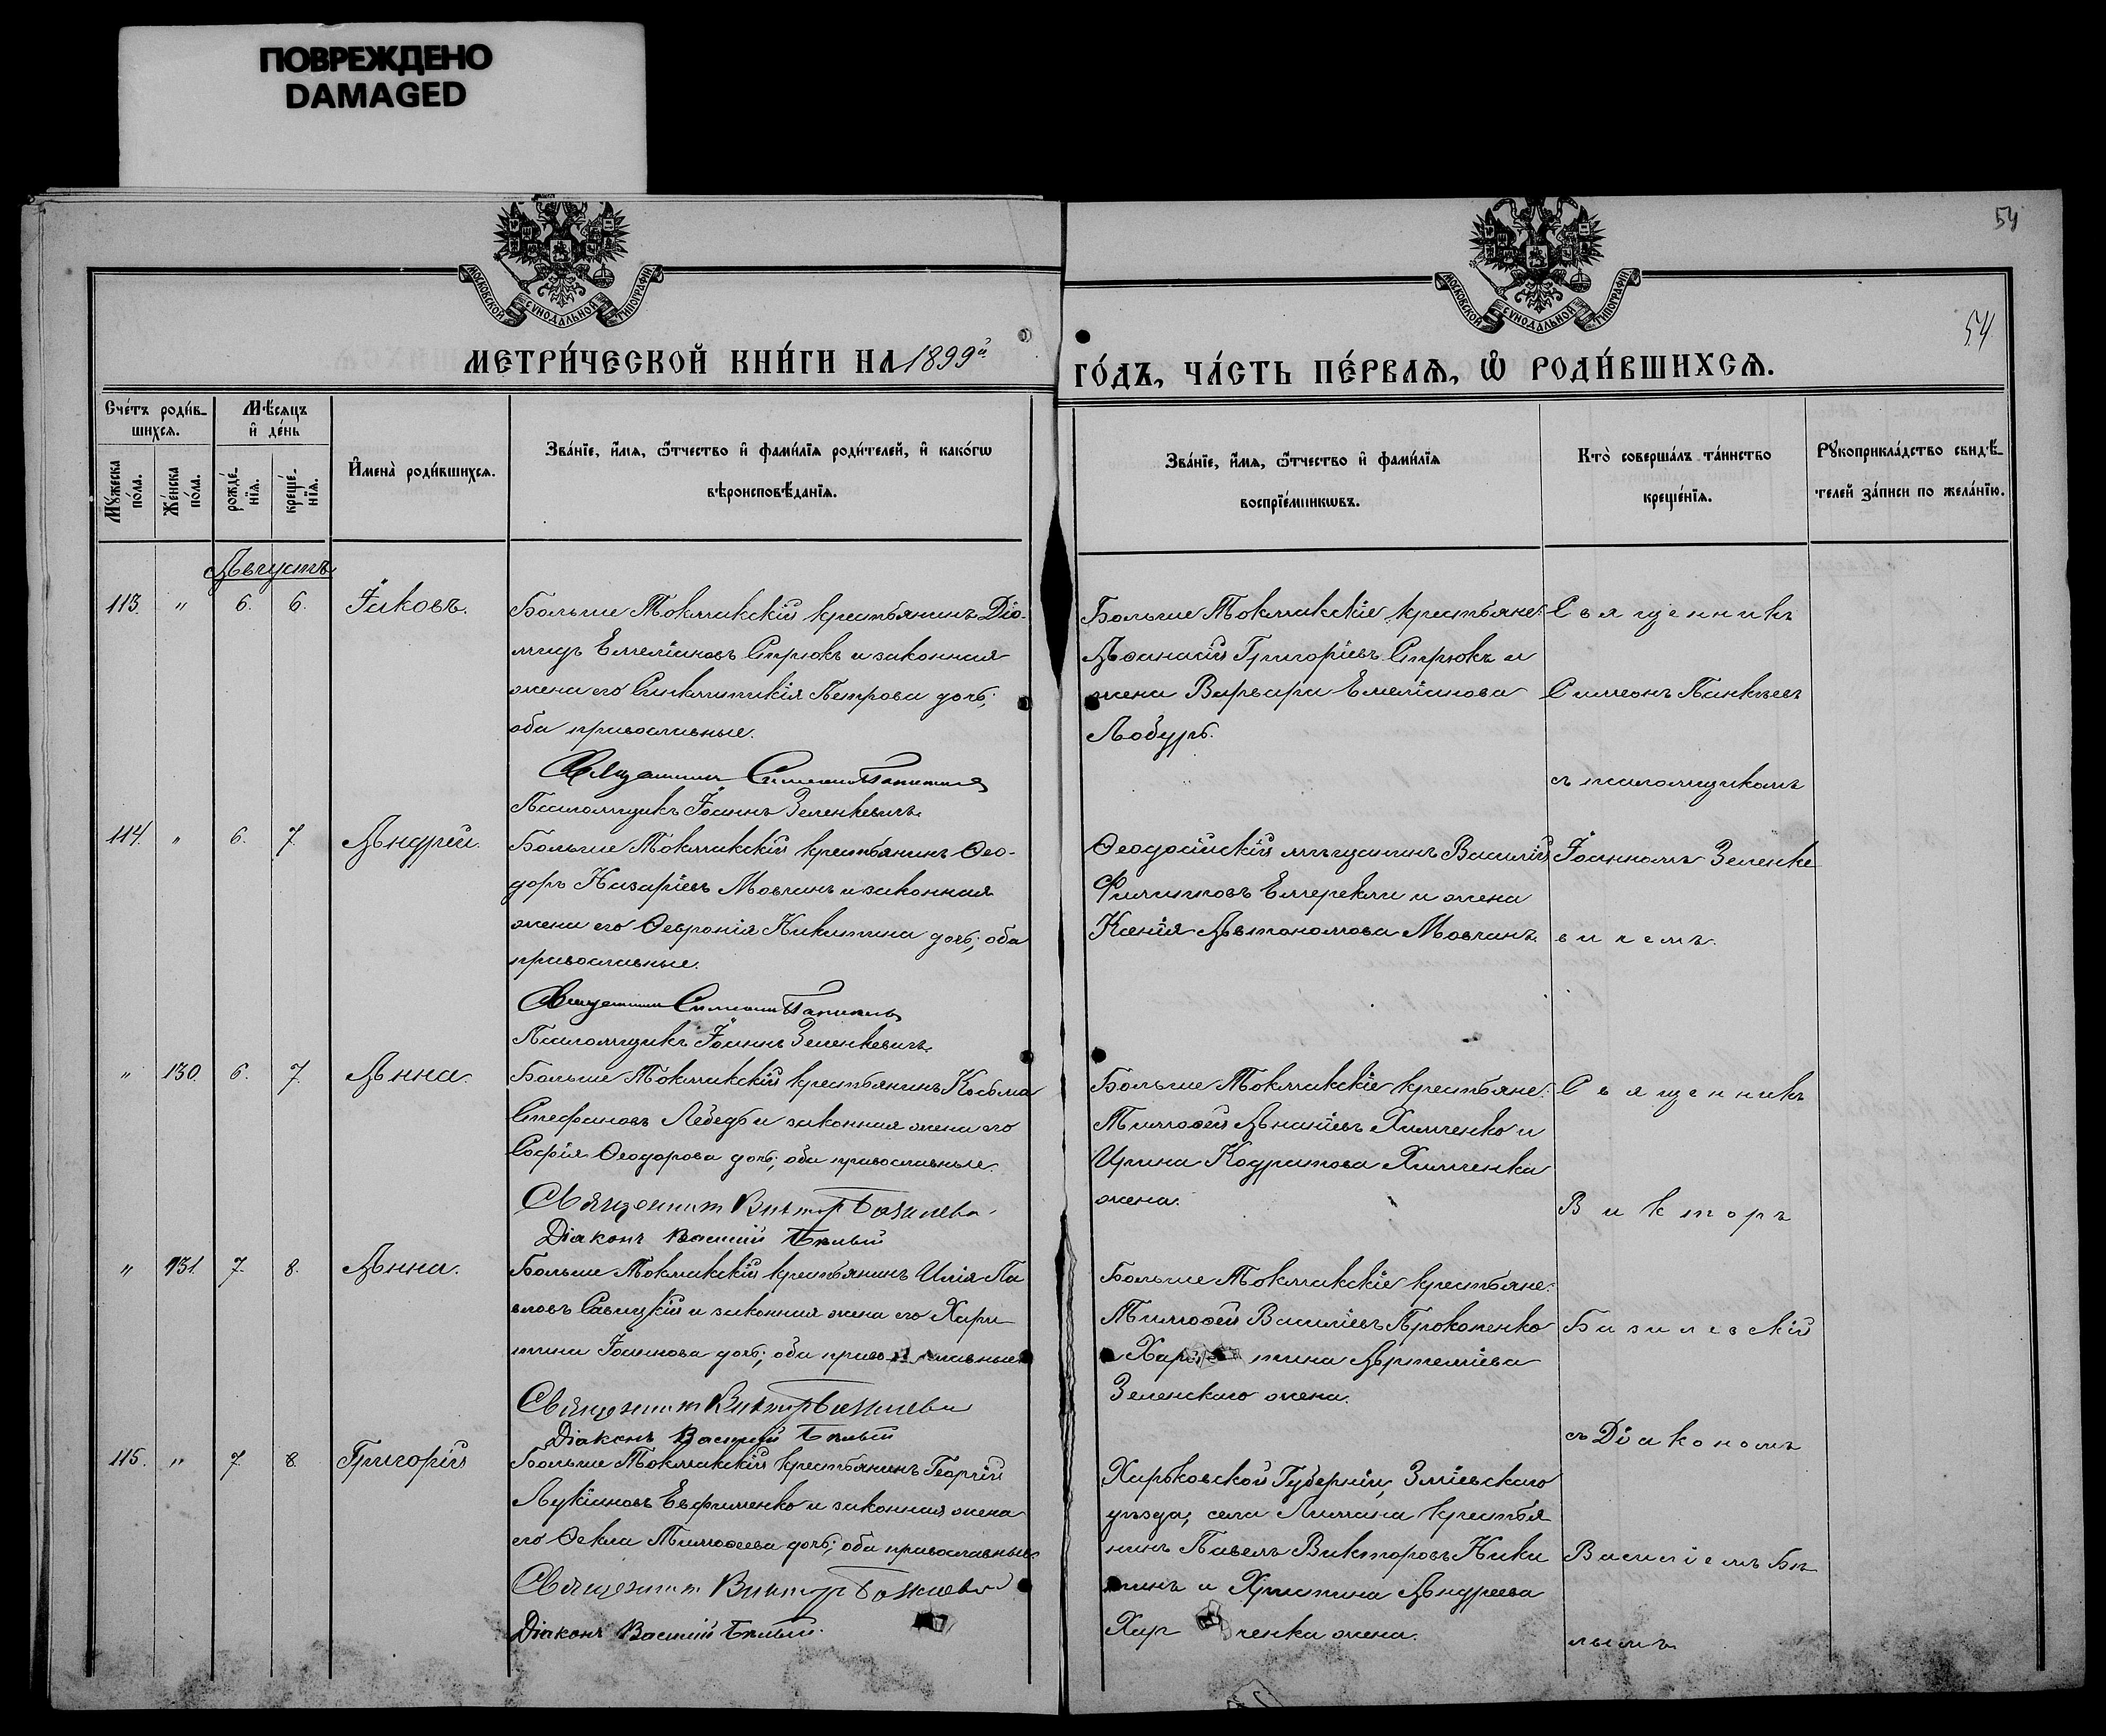 ПОВРЕЖДЕНО
DAMAGED
54
МОСКОВСКОЙ СѴНОДАЛЬНОЙ ТИПОГРАФІИ
МОСКОВСКОЙ СѴНОДАЛЬНОЙ ТИПОГРАФІИ
54.
МЕТРИ́ЧЕСКОЙ КНИ́ГИ НА 1899й
ГО́ДЪ, ЧА́СТЬ ПЕ́РВАѦ, Ѽ РОДИ́ВШИХСѦ.
Сче́тъ роди́в-
шихсѧ.
Мѣ́сѧцъ
и҆ де́нь
Мꙋ́жеска
пола.
Же́нска
по́ла.
рожде́-
нїѧ.
креще́-
нїѧ.
И҆мена̀ роди́вшихсѧ.
Зва́нїе, и҆́мѧ, ѻ҆́тчество и҆ фами́лїѧ роди́телей, и҆ како́гѡ
вѣроисповѣ́данїѧ.
Зва́нїе, и҆́мѧ, ѻ҆́тчество и҆ фами́лїѧ
воспрїе́мникѡвъ.
Кто̀ соверша́лъ та́инство
креще́нїѧ.
Рꙋкоприкла́дство свидѣ́-
телей за́писи по жела́нїю.
Августъ
113. " 6. 6. Іаковъ.
Больше Токмакскій крестьянинъ Діо-
мидъ Емеліановъ Стрюкъ и законная
жена его Синклитикія Петрова дочь;
оба православные.
Священникъ Симеонъ
Псаломщикъ Іоаннъ Зеленкевичъ.
Больше Токмакскіе крестьяне:
Аѳанасій Григоріевъ Стрюкъ и
жена Варвара Емеліанова
Лобурь.
Священникъ
Симеонъ
съ псаломщикомъ
114. " 6. 7. Андрей.
Больше Токмакскій крестьянинъ Ѳео-
доръ Назаріевъ Мовчанъ и законная
жена его Ѳевронія Никитина дочь; оба
православные.
Священникъ Симеонъ
Псаломщикъ Іоаннъ Зеленкевичъ.
Ѳеодосійскій мѣщанинъ Василій
Филипповъ и жена
Ксенія Автономова Мовчанъ.
Іоанномъ Зеленке
вичемъ.
" 130. 6. 7. Анна.
Больше Токмакскій крестьянинъ Косьма
Стефановъ Лебедь и законная жена его
Софія Ѳеодорова дочь; оба православные.
Священникъ Викторъ Базилевскій
Діаконъ Василій Бѣлый
Больше Токмакскіе крестьяне:
Тимоѳей Ананіевъ Химченко и
Ирина Кодратова Химченка
жена.
Священникъ
Викторъ
" 131. 7. 8. Анна.
Больше Токмакскій крестьянинъ Илія Па
вловъ Савицкій и законная жена его Хари
тина Іоаннова дочь; оба православные
Священникъ Викторъ Базилевскій
Діаконъ Василій Бѣлый
Больше Токмакскіе крестьяне:
Тимоѳей Василіевъ Прокопенко
и Харитина Артеміева
Зеленскаго жена.
Базилевскій
съ Діакономъ
115. " 7. 8 Григорій
Больше Токмакскій крестьянинъ Георгій
Лукіановъ Евфименко и законная жена
его Ѳекла Тимоѳеева дочь; оба православные
Священникъ Викторъ Базилевскій
Діаконъ Василій Бѣлый.
Харьковской Губерніи, Зміевскаго
уѣзда, села Лимана крестья
нинъ Павелъ Викторовъ Ники
тинъ и Христина Андреева
ченка жена.
Василіемъ Бѣ
лымъ.